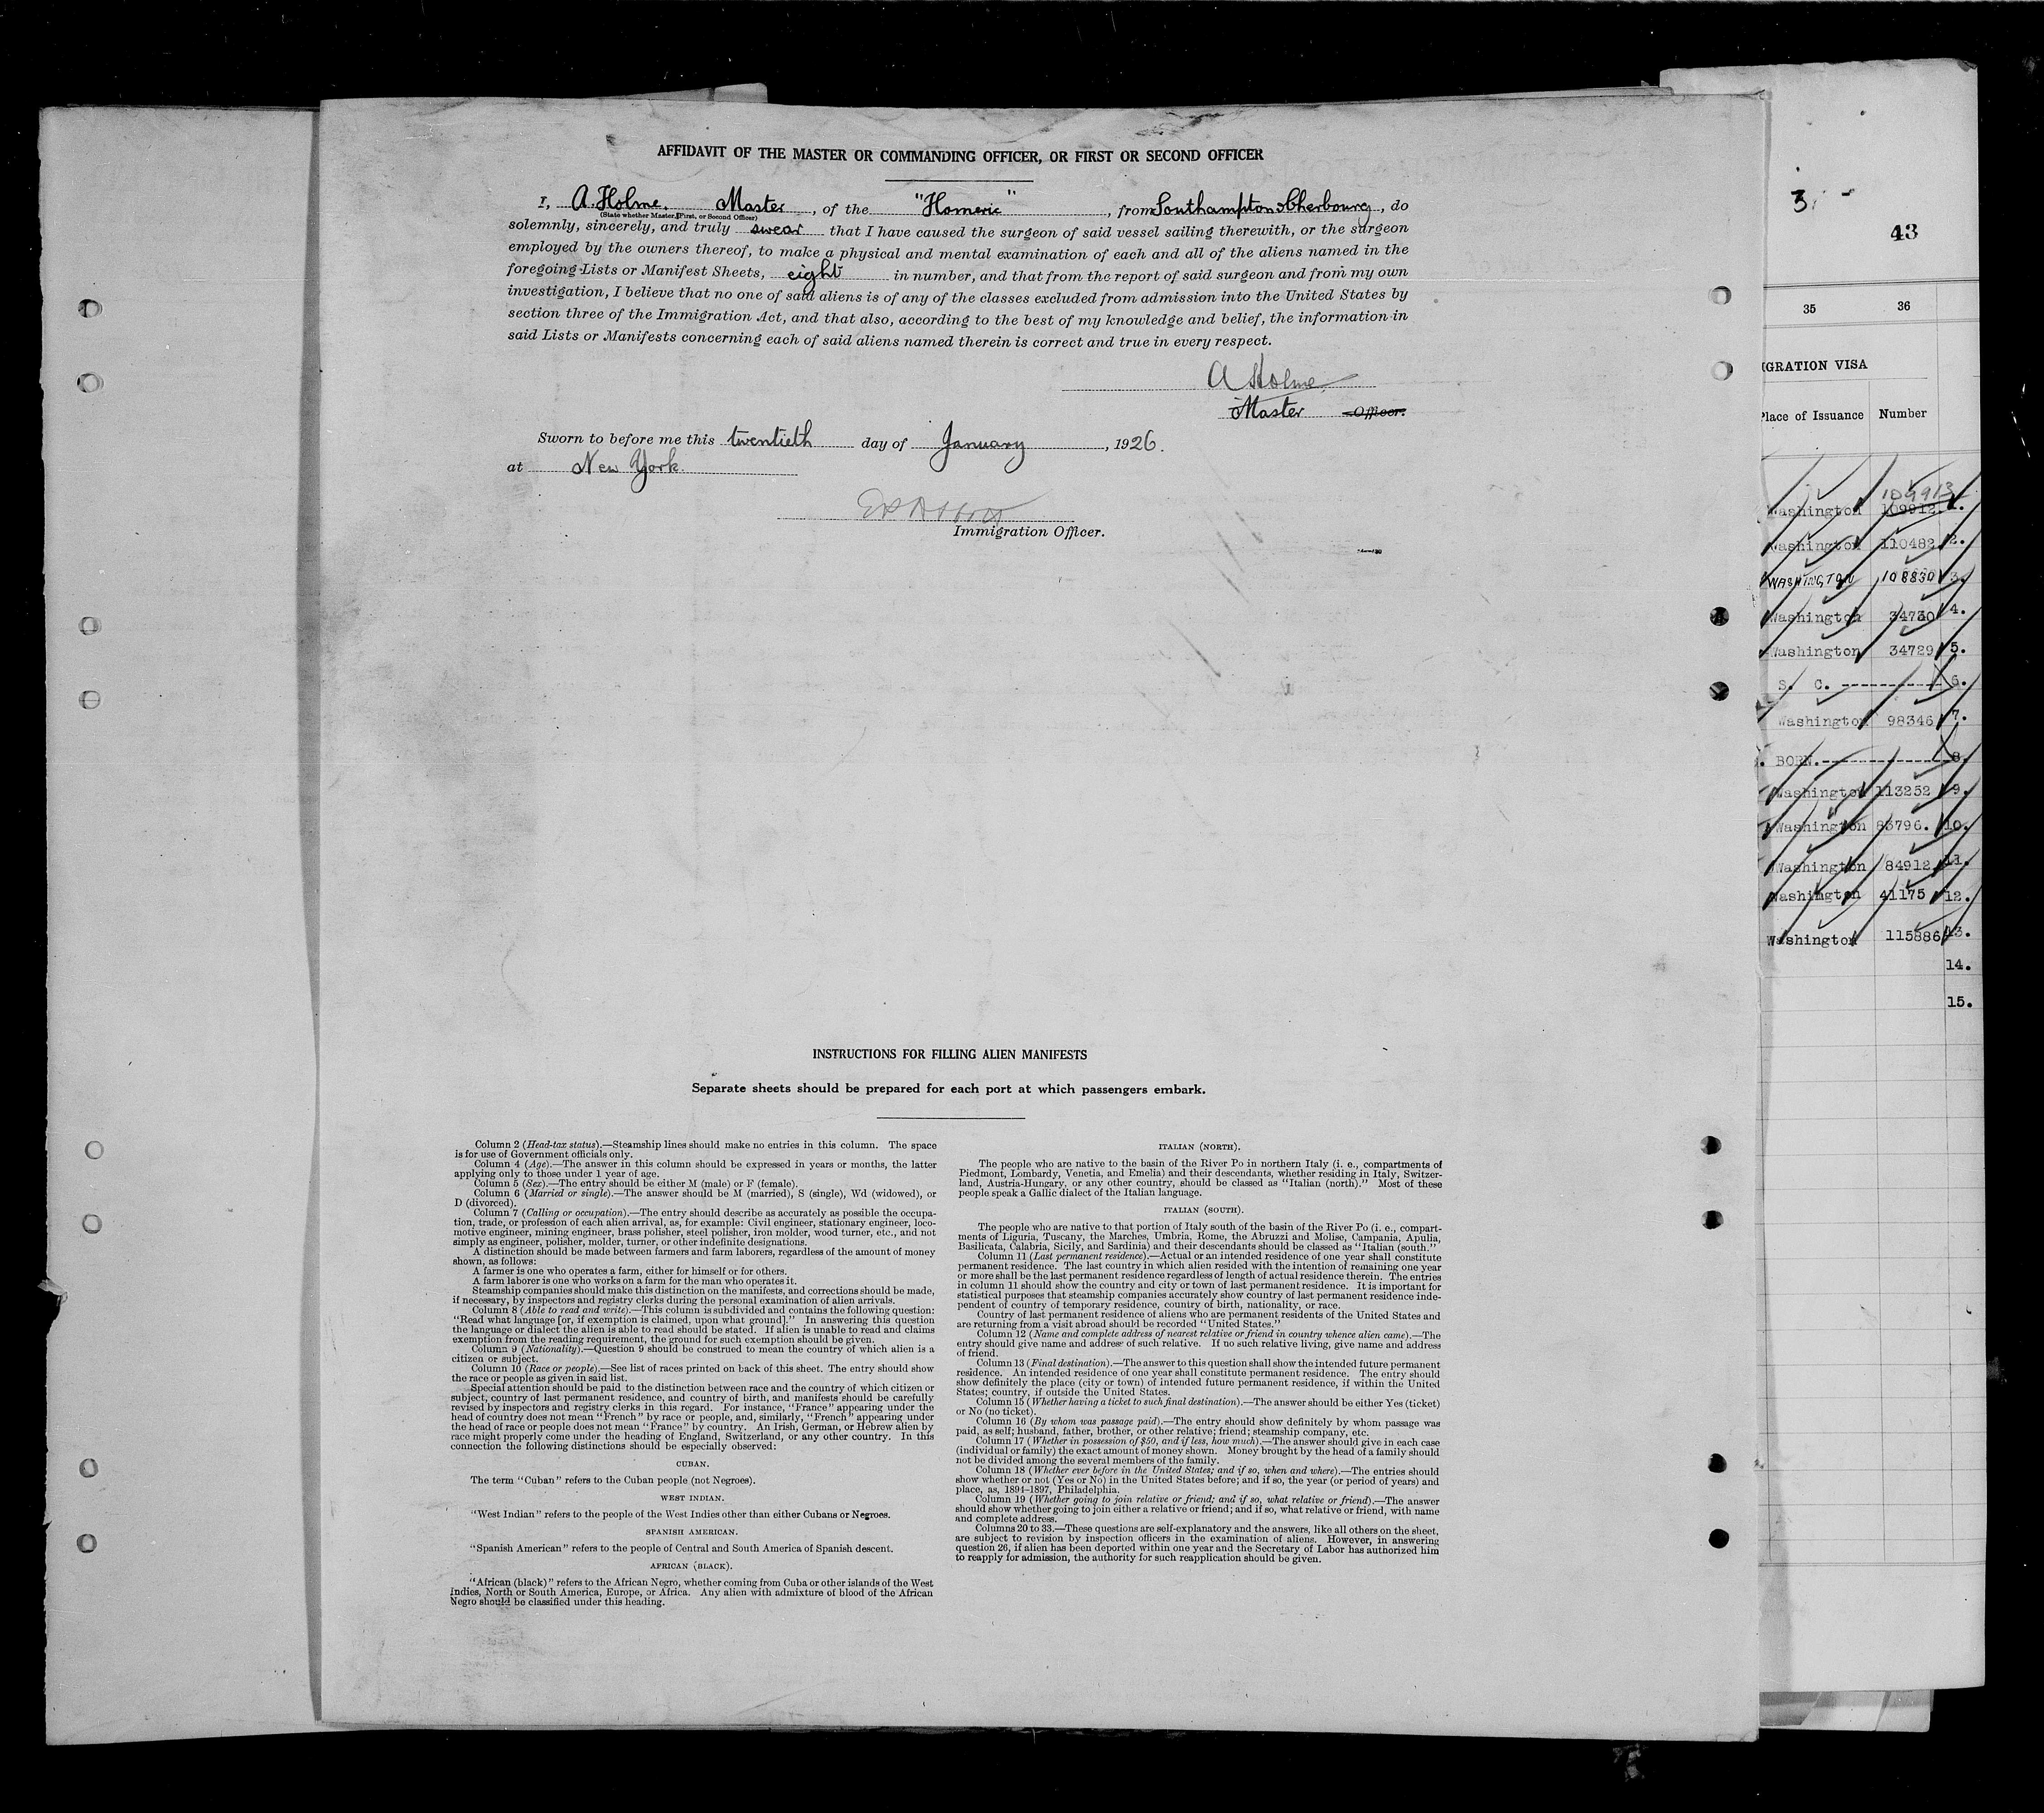 AFFIDAVIT OF THE MASTER OR COMMANDING OFFICER, OR FIRST OR SECOND OFFICER
I, A. Holme. Master, of the "Homeric", from Southampton & Cherbourg, do
(State whether Master, First, or Second Officer)
solemnly, sincerely, and truly swear that I have caused the surgeon of said vessel sailing therewith, or the surgeon
employed by the owners thereof, to make a physical and mental examination of each and all of the aliens named in the
foregoing Lists or Manifest Sheets, eight in number, and that from the report of said surgeon and from my own
investigation, I believe that no one of said aliens is of any of the classes excluded from admission into the United States by
section three of the Immigration Act, and that also, according to the best of my knowledge and belief, the information in
said Lists or Manifests concerning each of said aliens named therein is correct and true in every respect.
A Holme
Master Officer.
Sworn to before me this twentieth day of January, 1926.
at New York.
Immigration Officer.
INSTRUCTIONS FOR FILLING ALIEN MANIFESTS
Separate sheets should be prepared for each port at which passengers embark.
Column 2 (Head-tax status).—Steamship lines should make no entries in this column. The space
is for use of Government officials only.
Column 4 (Age).—The answer in this column should be expressed in years or months, the latter
applying only to those under 1 year of age.
Column 5 (Sex).—The entry should be either M (male) or F (female).
Column 6 (Married or single).—The answer should be M (married), S (single), Wd (widowed), or
D (divorced).
Column 7 (Calling or occupation).—The entry should describe as accurately as possible the occupa-
tion, trade, or profession of each alien arrival, as, for example: Civil engineer, stationary engineer, loco-
motive engineer, mining engineer, brass polisher, steel polisher, iron molder, wood turner, etc., and not
simply as engineer, polisher, molder, turner, or other indefinite designations.
A distinction should be made between farmers and farm laborers, regardless of the amount of money
shown, as follows:
A farmer is one who operates a farm, either for himself or for others.
A farm laborer is one who works on a farm for the man who operates it.
Steamship companies should make this distinction on the manifests, and corrections should be made,
if necessary, by inspectors and registry clerks during the personal examination of alien arrivals.
Column 8 (Able to read and write).—This column is subdivided and contains the following question:
"Read what language [or, if exemption is claimed, upon what ground]." In answering this question
the language or dialect the alien is able to read should be stated. If alien is unable to read and claims
exemption from the reading requirement, the ground for such exemption should be given.
Column 9 (Nationality).—Question 9 should be construed to mean the country of which alien is a
citizen or subject.
Column 10 (Race or people).—See list of races printed on back of this sheet. The entry should show
the race or people as given in said list.
Special attention should be paid to the distinction between race and the country of which citizen or
subject, country of last permanent residence, and country of birth, and manifests should be carefully
revised by inspectors and registry clerks in this regard. For instance, "France" appearing under the
head of country does not mean "French" by race or people, and, similarly, "French" appearing under
the head of race or people does not mean "France" by country. An Irish, German, or Hebrew alien by
race might properly come under the heading of England, Switzerland, or any other country. In this
connection the following distinctions should be especially observed:
CUBAN.
The term "Cuban" refers to the Cuban people (not Negroes).
WEST INDIAN.
"West Indian" refers to the people of the West Indies other than either Cubans or Negroes.
SPANISH AMERICAN.
"Spanish American" refers to the people of Central and South America of Spanish descent.
AFRICAN (BLACK).
"African (black)" refers to the African Negro, whether coming from Cuba or other islands of the West
Indies, North or South America, Europe, or Africa. Any alien with admixture of blood of the African
Negro should be classified under this heading.
ITALIAN (NORTH).
The people who are native to the basin of the River Po in northern Italy (i. e., compartments of
Piedmont, Lombardy, Venetia, and Emelia) and their descendants, whether residing in Italy, Switzer-
land, Austria-Hungary, or any other country, should be classed as "Italian (north)." Most of these
people speak a Gallic dialect of the Italian language.
ITALIAN (SOUTH).
The people who are native to that portion of Italy south of the basin of the River Po (i. e., compart-
ments of Liguria, Tuscany, the Marches, Umbria, Rome, the Abruzzi and Molise, Campania, Apulia,
Basilicata, Calabria, Sicily, and Sardinia) and their descendants should be classed as "Italian (south."
Column 11 (Last permanent residence).—Actual or an intended residence of one year shall constitute
permanent residence. The last country in which alien resided with the intention of remaining one year
or more shall be the last permanent residence regardless of length of actual residence therein. The entries
in column 11 should show the country and city or town of last permanent residence. It is important for
statistical purposes that steamship companies accurately show country of last permanent residence inde-
pendent of country of temporary residence, country of birth, nationality, or race.
Country of last permanent residence of aliens who are permanent residents of the United States and
are returning from a visit abroad should be recorded "United States."
Column 12 (Name and complete address of nearest relative or friend in country whence alien came).—The
entry should give name and address of such relative. If no such relative living, give name and address
of friend.
Column 13 (Final destination).—The answer to this question shall show the intended future permanent
residence. An intended residence of one year shall constitute permanent residence. The entry should
show definitely the place (city or town) of intended future permanent residence, if within the United
States; country, if outside the United States.
Column 15 (Whether having a ticket to such final destination).—The answer should be either Yes (ticket)
or No (no ticket).
Column 16 (By whom was passage paid).—The entry should show definitely by whom passage was
paid, as self; husband, father, brother, or other relative; friend; steamship company, etc.
Column 17 (Whether in possession of $50, and if less, how much).—The answer should give in each case
(individual or family) the exact amount of money shown. Money brought by the head of a family should
not be divided among the several members of the family.
Column 18 (Whether ever before in the United States; and if so, when and where).—The entries should
show whether or not (Yes or No) in the United States before; and if so, the year (or period of years) and
place, as, 1894-1897, Philadelphia.
Column 19 (Whether going to join relative or friend; and if so, what relative or friend).—The answer
should show whether going to join either a relative or friend; and if so, what relative or friend, with name
and complete address.
Columns 20 to 33.—These questions are self-explanatory and the answers, like all others on the sheet,
are subject to revision by inspection officers in the examination of aliens. However, in answering
question 26, if alien has been deported within one year and the Secretary of Labor has authorized him
to reapply for admission, the authority for such reapplication should be given.
3
43
35 36
IGRATION VISA
Place of Issuance Number
109913
Washington 109912 1.
Washington 110482 2.
WASHINGTON 108830 3.
Washington 34730 4.
Washington 34729 5.
S. C. 6.
Washington 98346 7.
BORN. 8.
Washington 113252 9.
Washington 83796. 10.
Washington 84912 11.
Washington 41175 12.
Washington 115886 13.
14.
15.